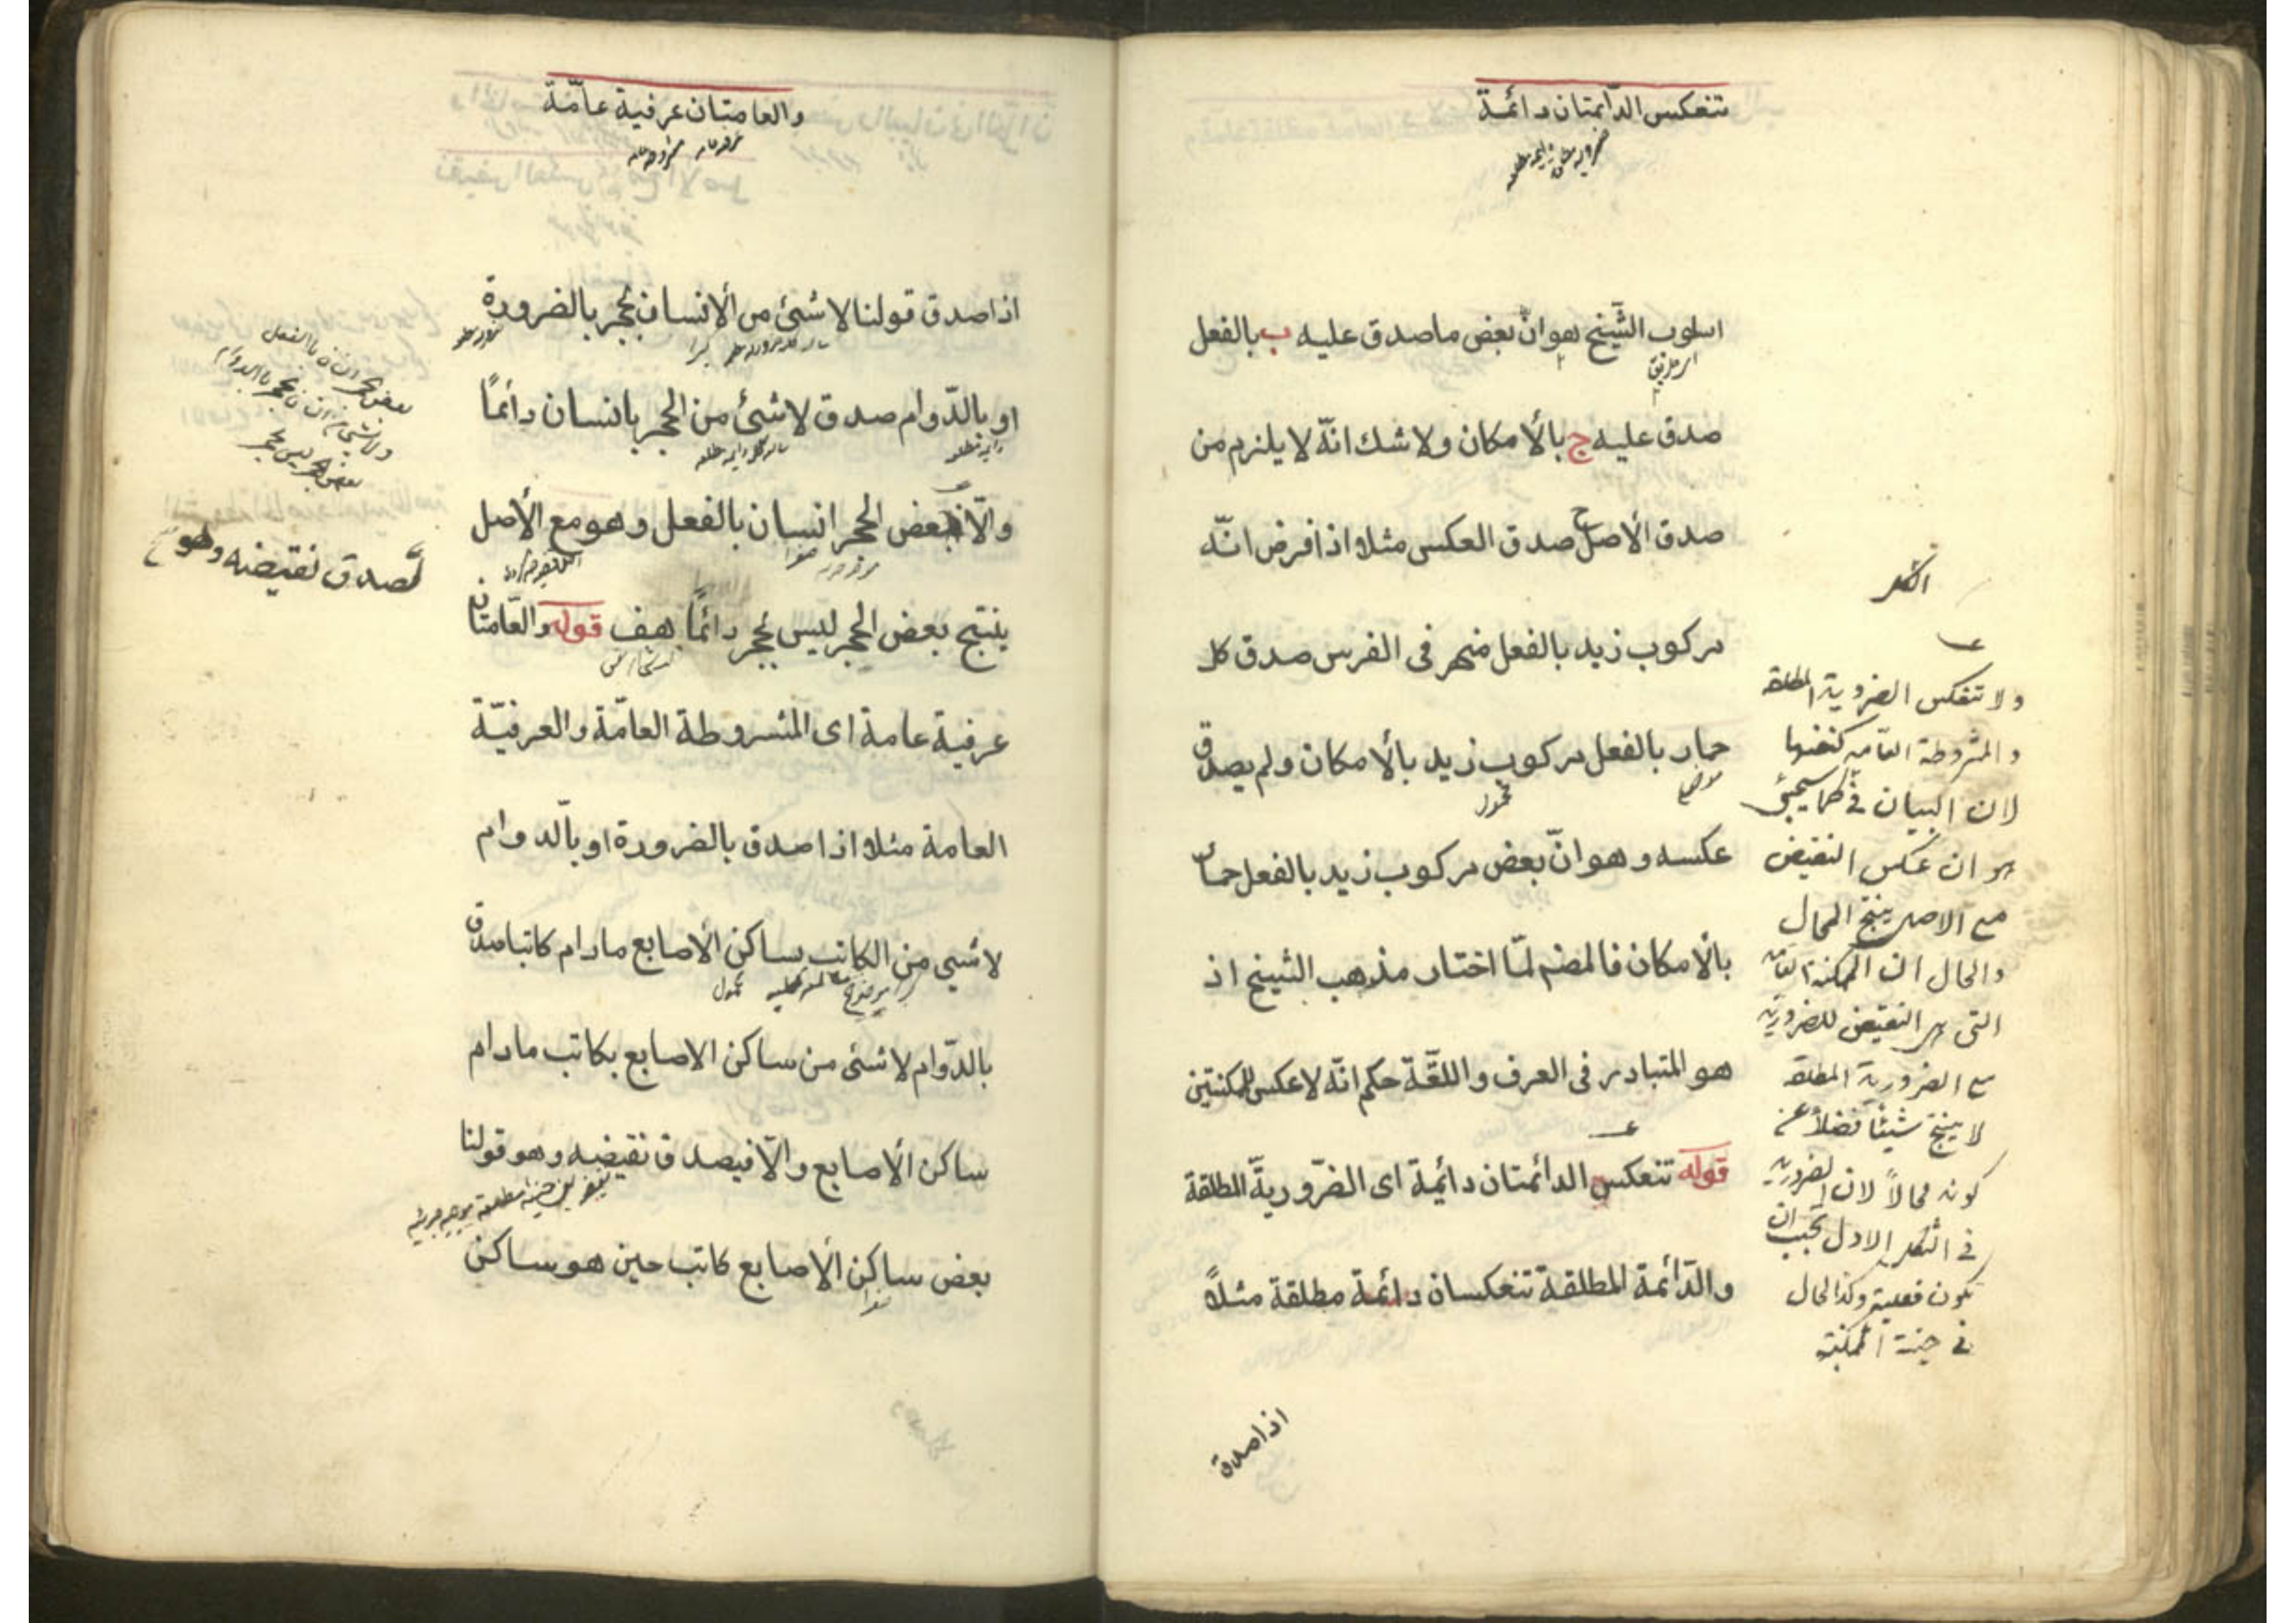 تنعكس الدّائمتان دائمة
ضرورية مطلقة دايمه مطلقه
اسلوب الشّيخ هو انّ بعض ما صدق عليه ب بالفعل
صدق عليه ج بالأمكان ولا شك انّه لا يلزم من
صدق الأصل ح صدق العكس مثلا اذا فرض انّه
مركوب زيد بالفعل منحصر فى الفرس صدق كل
حمار بالفعل مركوب زيد بالأمكان ولم يصدق
موضوع محمول
عكسه وهو انّ بعض مركوب زيد بالفعل حمار
بالأمكان فالمصنم لمّا اختار مذهب الشيخ اذ
هو المتبادر فى العرف واللغّة حكم انّه لا عكس للممكنتين
قوله تنعكس الدائمتان دائمية اى الضّروريّة المطلقة
والدّائمة المطلقة تنعكسان دائمة مطلقة مثلاً
اذا صدق
ولا تنعكس الضرورية المطلقه
والمشروطة العامه كنفسها
لان البيان فى كما سيجئ
هو ان عكس النقيض
مع الاصل ينتج المحال
والحال ان الممكنة العامه
التى هى النقيض للضرورية
مع الضرورية المطلقه
لا ينتج شيئا فضلاً عن
كونه محالاً لان الضرورية
فى الشكل الاول يجب ان
تكون فعلية وكذا الحال
فى الممكنة
والعامتان عرفية عامّة
عرفيه عامه مشروطه عامه
اذا صدق قولنا لا شئ من الأنسان بحجر بالضرورة
او بالدّوام صدق لا شئ من الحجر بانسان دائماً
والّا فبعض الحجر انسان بالفعل وهو مع الأصل
ينتج بعض الحجر ليس بحجر دائماً هف قوله والعامتان
عرفية عامة اى المشروطة العامّة والعرفيّة
العامة مثلا اذا صدق بالضرورة او بالّدوام
لا شيى من الكاتب بساكن الأصابع مادام كاتبا صدق
موضوع محمول
بالدّوام لا شئ من ساكن الاصابع بكاتب مادام
ساكن الأصابع والّا فيصدق نقيضه وهو قولنا
بعض ساكن الأصابع كاتب حين هو ساكن
بعض الحجر انسان بالفعل
ولا شئ من انسان بحجر بالدوام
بعض الحجر ليس بحجر
لصدق نقيضه وهو